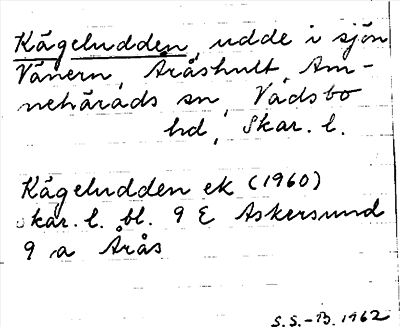 Kågeludden, udde i sjön
Vänern, Aråshult, Am-
nehärads sn, Vadsbo
hd, Skar. l.
Kågeludden ek (1960)
Skar. l. bl. 9 E Askersund
9 a Årås
S.S.-B. 1962